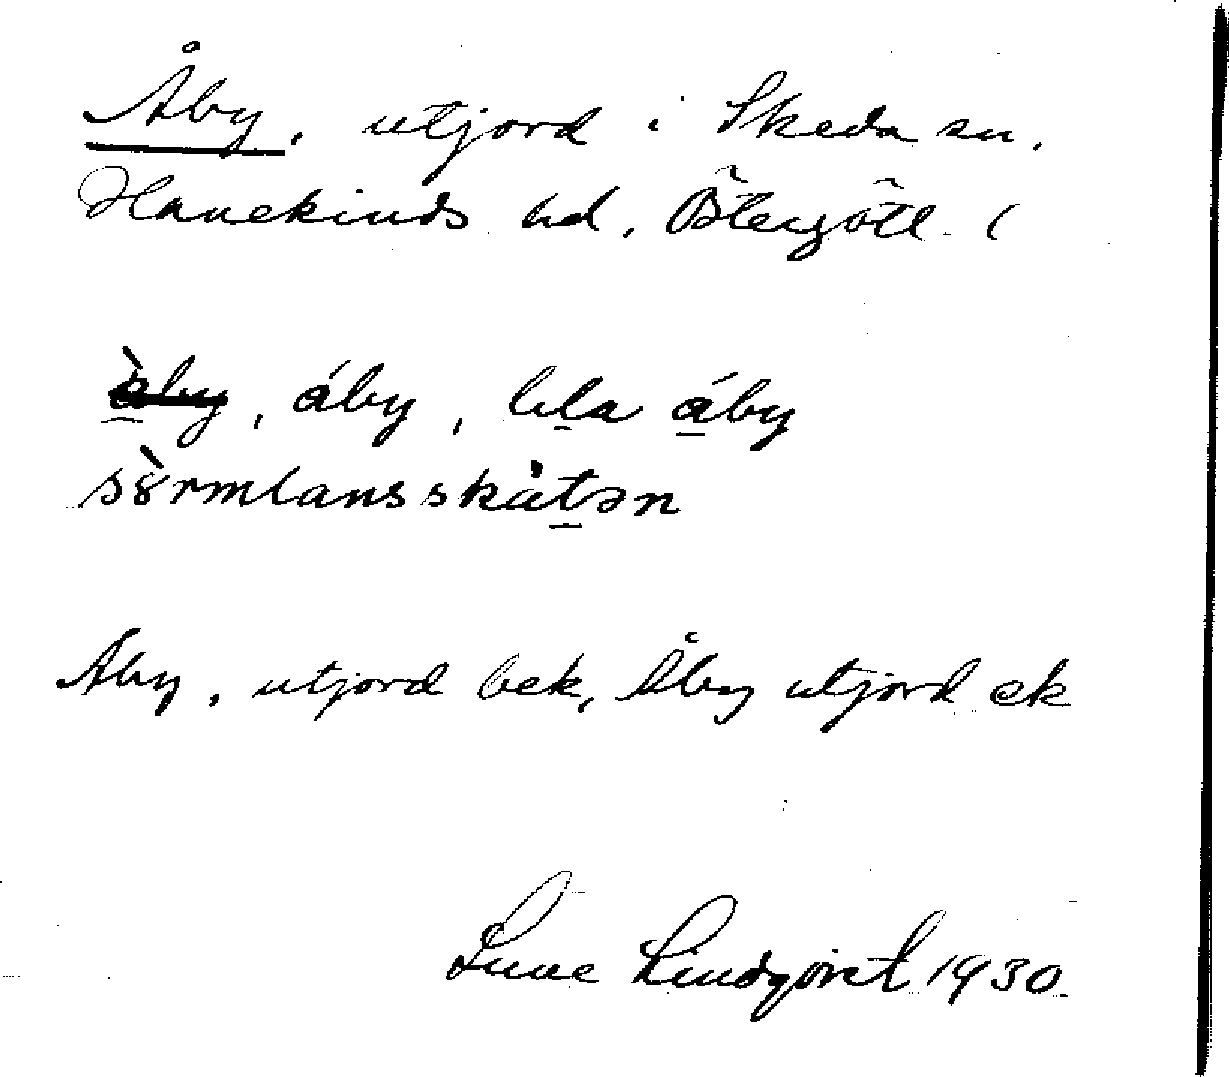 Åby, utjord i Skeda sn,
Hanekinds hd, Östergötl. l
åby, áby, lila áby
sörmlansskåtən
Åby, utjord bek, Åby utjord ek
Sune Lindqvist 1930.